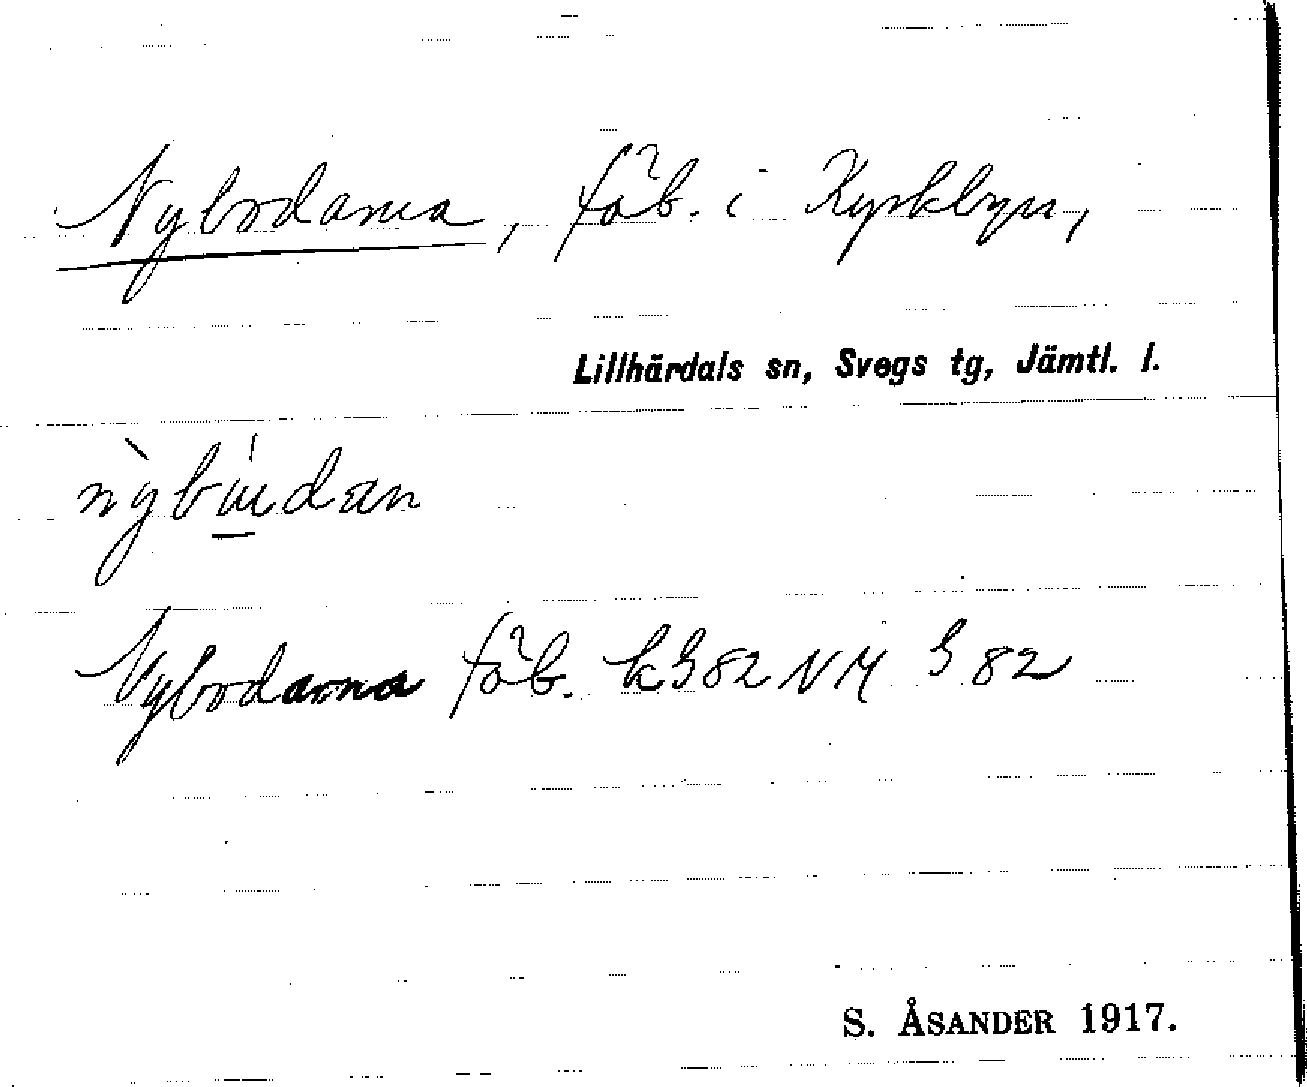 Nybodarna, fäb. i Kyrkbyn,
Lillhärdals sn, Svegs tg, Jämtl. l.
Nybodarna fäb. k 382 NM 382
S. ÅSANDER 1917.